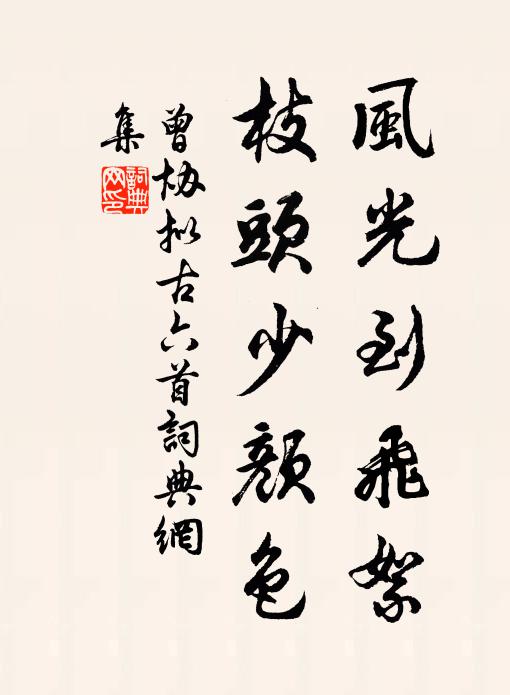 風光到飛絮
枝頭少顏色
曾協拟古六首詞典網
集
詞典
网印